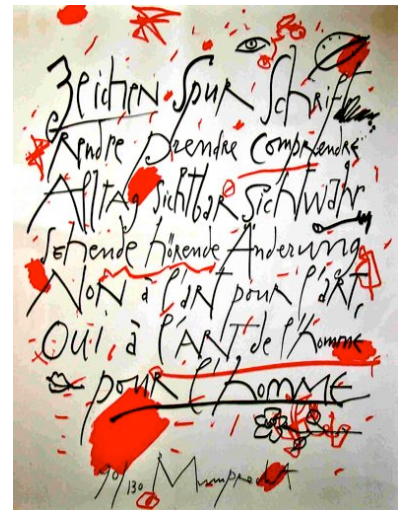 Zeichen Spur Schrift
Rendre prendre comprendre
Alltag Sichtbar Sichtwahr
Sehende hörende Änderung
Non à l'art pour l'art,
Oui à l'ART de l'homme
pour l'homme
90/130 Mumprecht